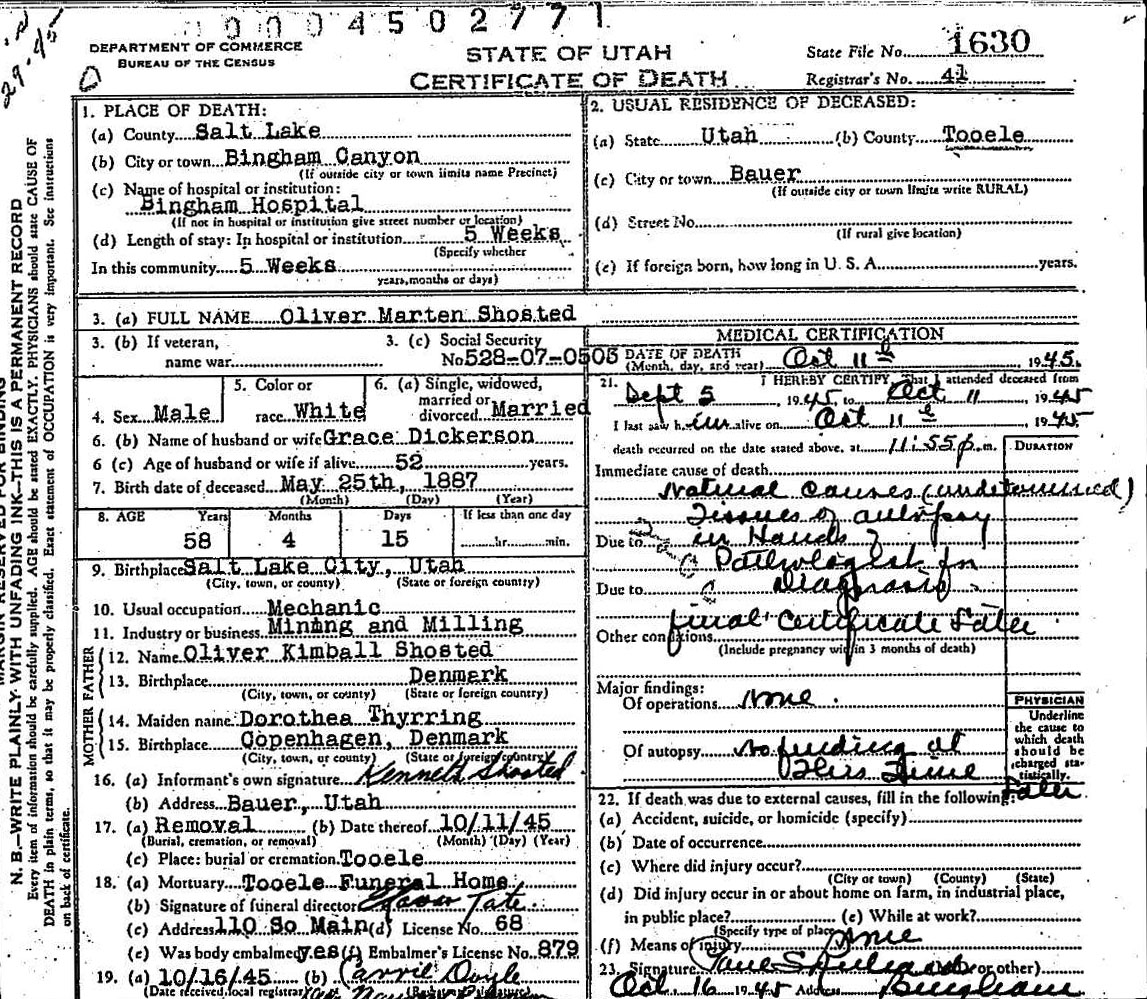 0004502771
29-45
DEPARTMENT OF COMMERCE
BUREAU OF THE CENSUS
STATE OF UTAH
CERTIFICATE OF DEATH
State File No. 1630
Registrar's No. 41
MARGIN RESERVED FOR BINDING
N. B.—WRITE PLAINLY WITH UNFADING INK—THIS IS A PERMANENT RECORD
Every item of information should be carefully supplied. AGE should be stated EXACTLY. PHYSICIANS should state CAUSE OF
DEATH in plain terms, so that it may be properly classified. Exact statement of OCCUPATION is very important. See instructions
on back of certificate.
1. PLACE OF DEATH:
(a) County Salt Lake
(b) City or town Bingham Canyon
(If outside city or town limits name Precinct)
(c) Name of hospital or institution:
Bingham Hospital
(If not in hospital or institution give street number or location)
(d) Length of stay: In hospital or institution 5 Weeks
(Specify whether
In this community 5 Weeks
years, months or days)
2. USUAL RESIDENCE OF DECEASED:
(a) State Utah (b) County Tooele
(c) City or town Bauer
(If outside city or town limits write RURAL)
(d) Street No.
(If rural give location)
(e) If foreign born, how long in U. S. A. years.
3. (a) FULL NAME Oliver Marten Shosted
3. (b) If veteran,
name war
3. (c) Social Security
No 528-07-0505
4. Sex Male
5. Color or
race White
6. (a) Single, widowed,
married or
divorced Married
6. (b) Name of husband or wife Grace Dickerson
6 (c) Age of husband or wife if alive 52 years.
7. Birth date of deceased May 25th, 1887
(Month) (Day) (Year)
8. AGE Years Months Days If less than one day
58 4 15 hr. min.
9. Birthplace Salt Lake City, Utah
(City, town, or county) (State or foreign country)
10. Usual occupation Mechanic
11. Industry or business Mining and Milling
FATHER
12. Name Oliver Kimball Shosted
13. Birthplace Denmark
(City, town, or county) (State or foreign country)
MOTHER
14. Maiden name Dorothea Thyrring
15. Birthplace Copenhagen, Denmark
(City, town, or county) (State or foreign country)
16. (a) Informant's own signature Kenneth Shosted
(b) Address Bauer, Utah
17. (a) Removal (b) Date thereof 10/11/45
(Burial, cremation, or removal) (Month) (Day) (Year)
(c) Place: burial or cremation Tooele
18. (a) Mortuary Tooele Funeral Home
(b) Signature of funeral director Tate
(c) Address 110 So Main (d) License No. 68
(e) Was body embalmed yes (f) Embalmer's License No. 879
19. (a) 10/16/45 (b) Carrie Doyle
(Date received local registrar)
MEDICAL CERTIFICATION
DATE OF DEATH
(Month, day, and year) Oct 11th 1945.
21. I HEREBY CERTIFY, That I attended deceased from
Sept 5, 1945 to Oct 11, 1945
I last saw him alive on Oct 11th 1945
death occurred on the date stated above, at 11:55 p. m. DURATION
Immediate cause of death
Natural causes (undetermined)
Tissues of autopsy
Due to in Hands of
Pathologist for
Due to Diagnosis
final Certificate Later
Other conditions
(Include pregnancy within 3 months of death)
Major findings:
Of operations None.
Of autopsy no finding at
this time
PHYSICIAN
Underline
the cause to
which death
should be
charged sta-
tistically.
22. If death was due to external causes, fill in the following: Later
(a) Accident, suicide, or homicide (specify)
(b) Date of occurrence
(c) Where did injury occur?
(City or town) (County) (State)
(d) Did injury occur in or about home on farm, in industrial place,
in public place? (e) While at work?
(Specify type of place)
(f) Means of injury None
23. Signature Paul S. (M.D. or other)
Oct. 16 1945 Address Bingham